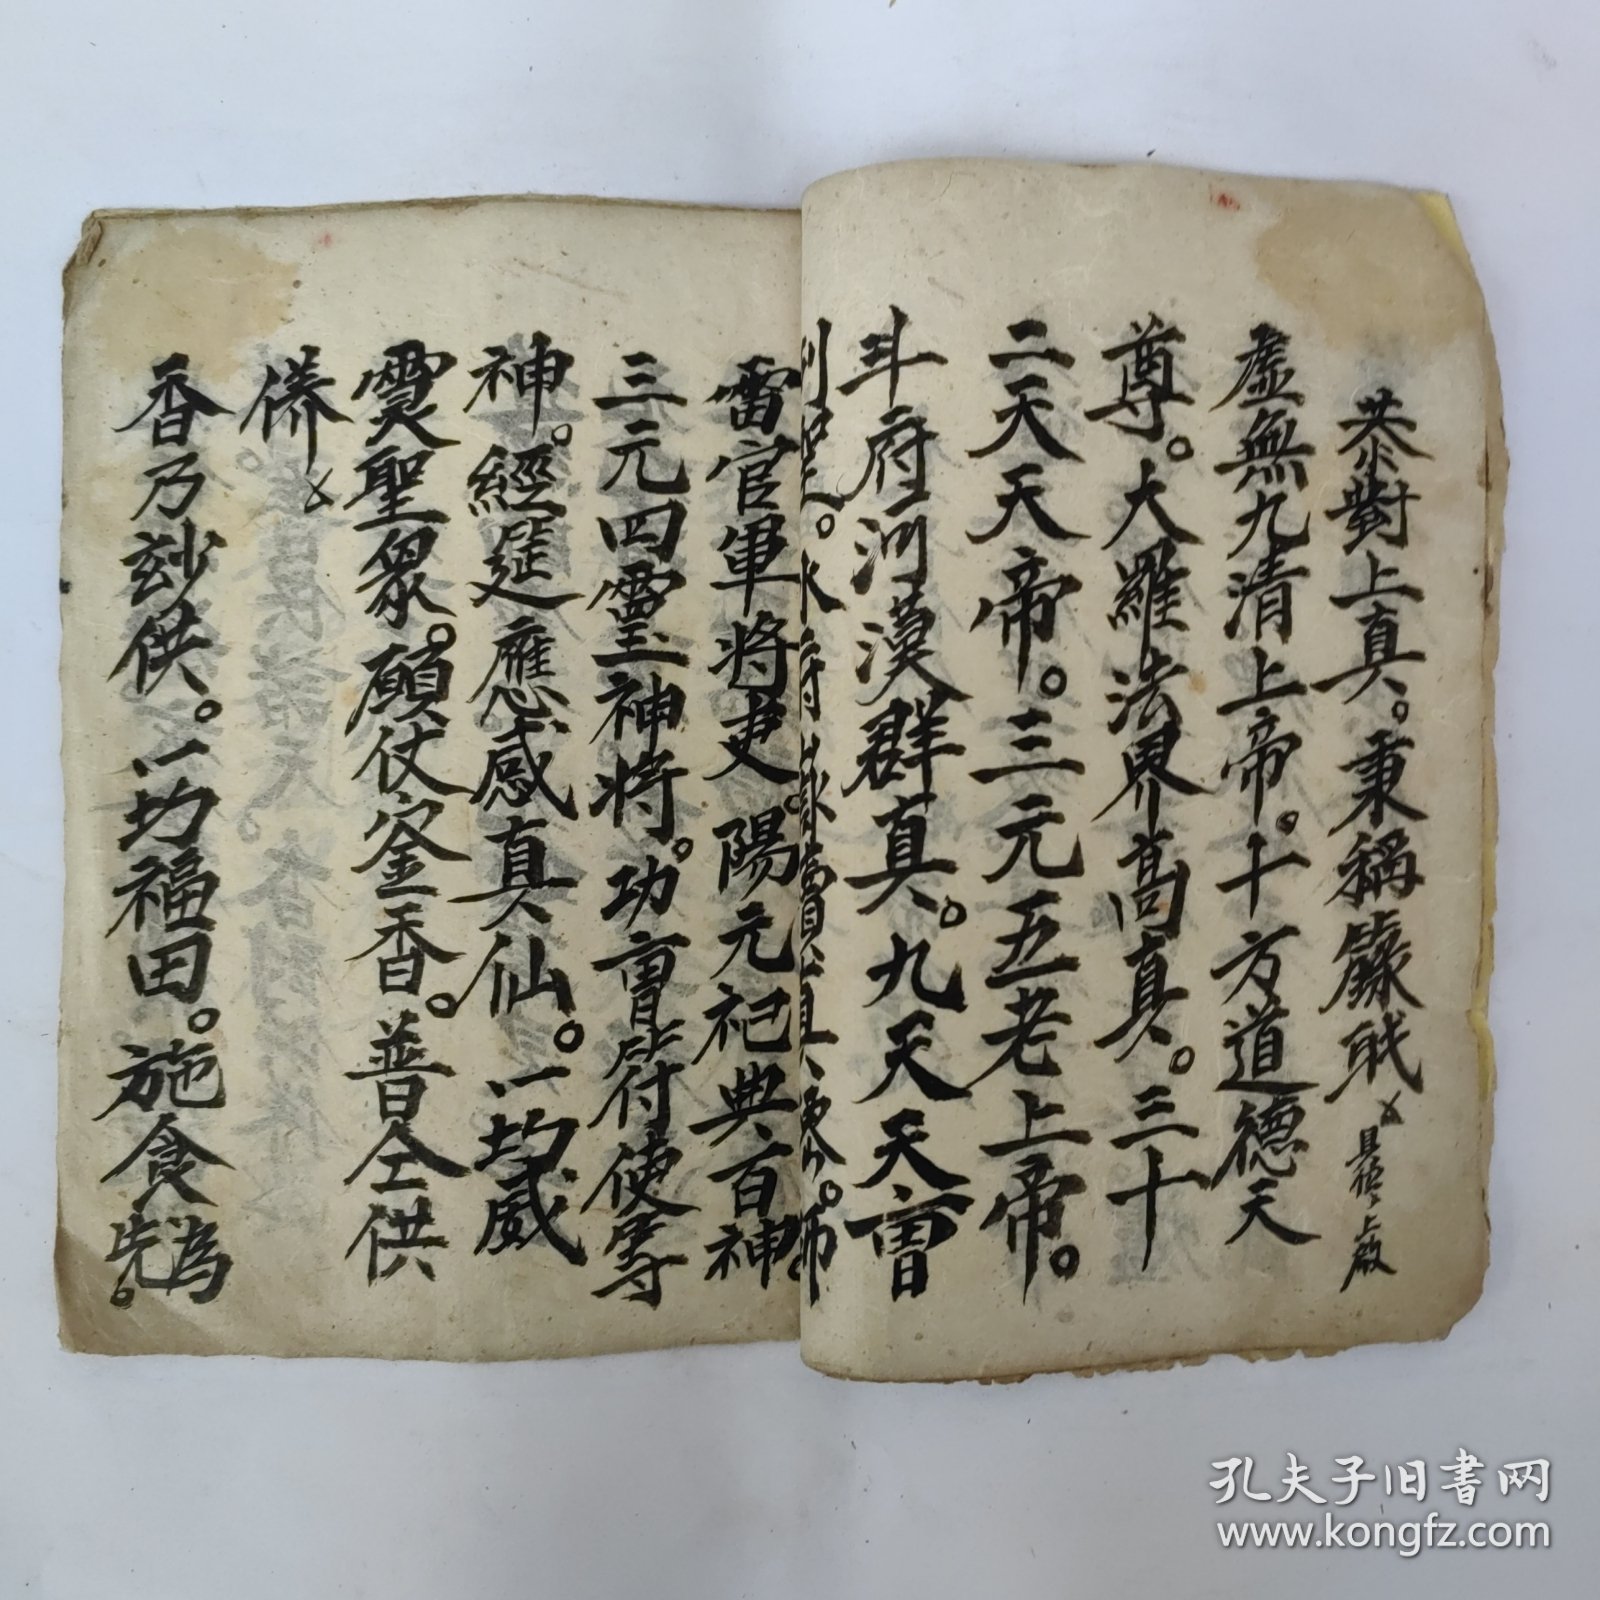 恭對上真。秉稱籙職 具位 上啟
虛無九清上帝。十方道德天
尊。大羅法界高真。三十
二天天帝。三元五老上帝。
斗府河漢群真。九天天曹
雷官軍將吏。陽元祀典百神。
三元四靈神將。功曹符使等
神。經筵應感真仙。一切威
靈聖衆。願仗寶香。普仝供
養
香乃玅供。一切福田。施食為先。
孔夫子旧书网
www.kongfz.com